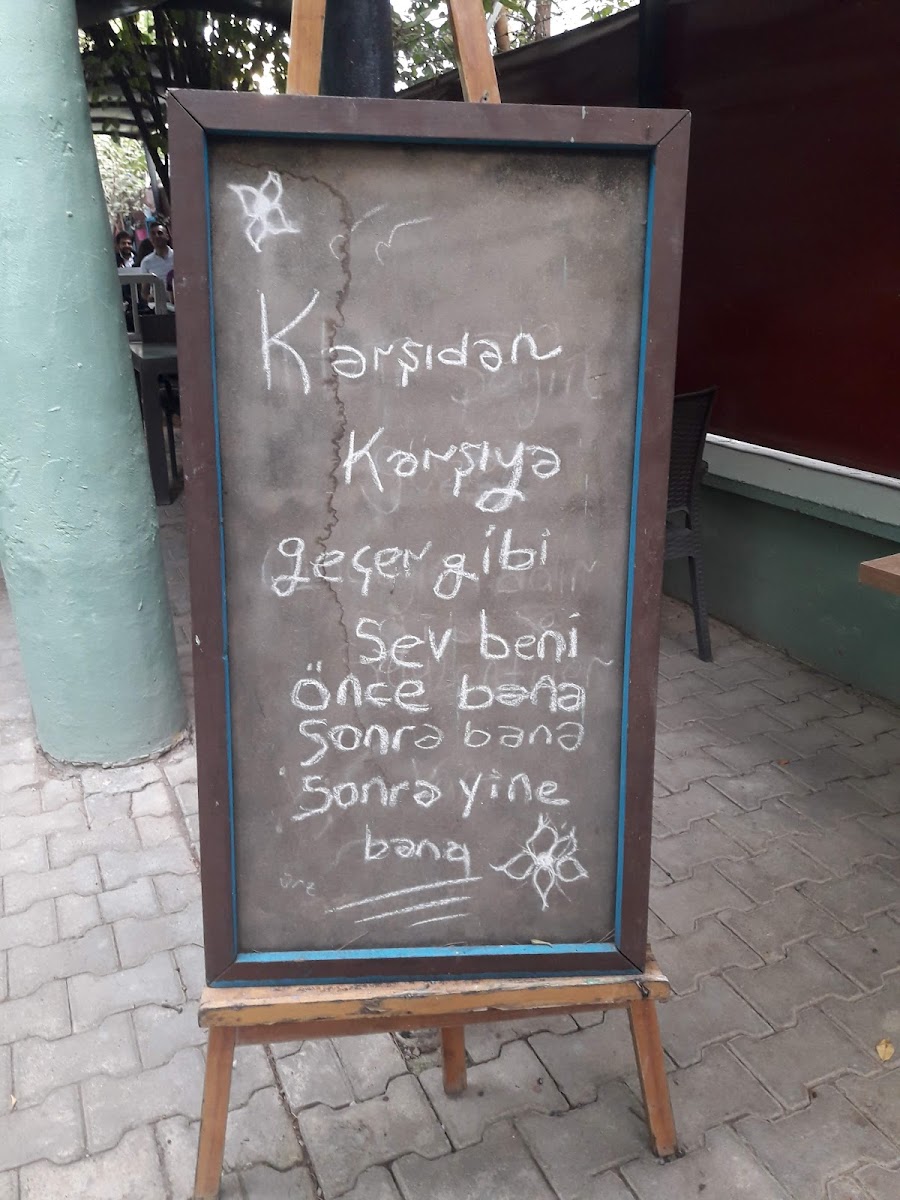 Karşıdan
Karşıya
geçer gibi
Sev beni
Önce bana
Sonra bana
Sonra yine
bana